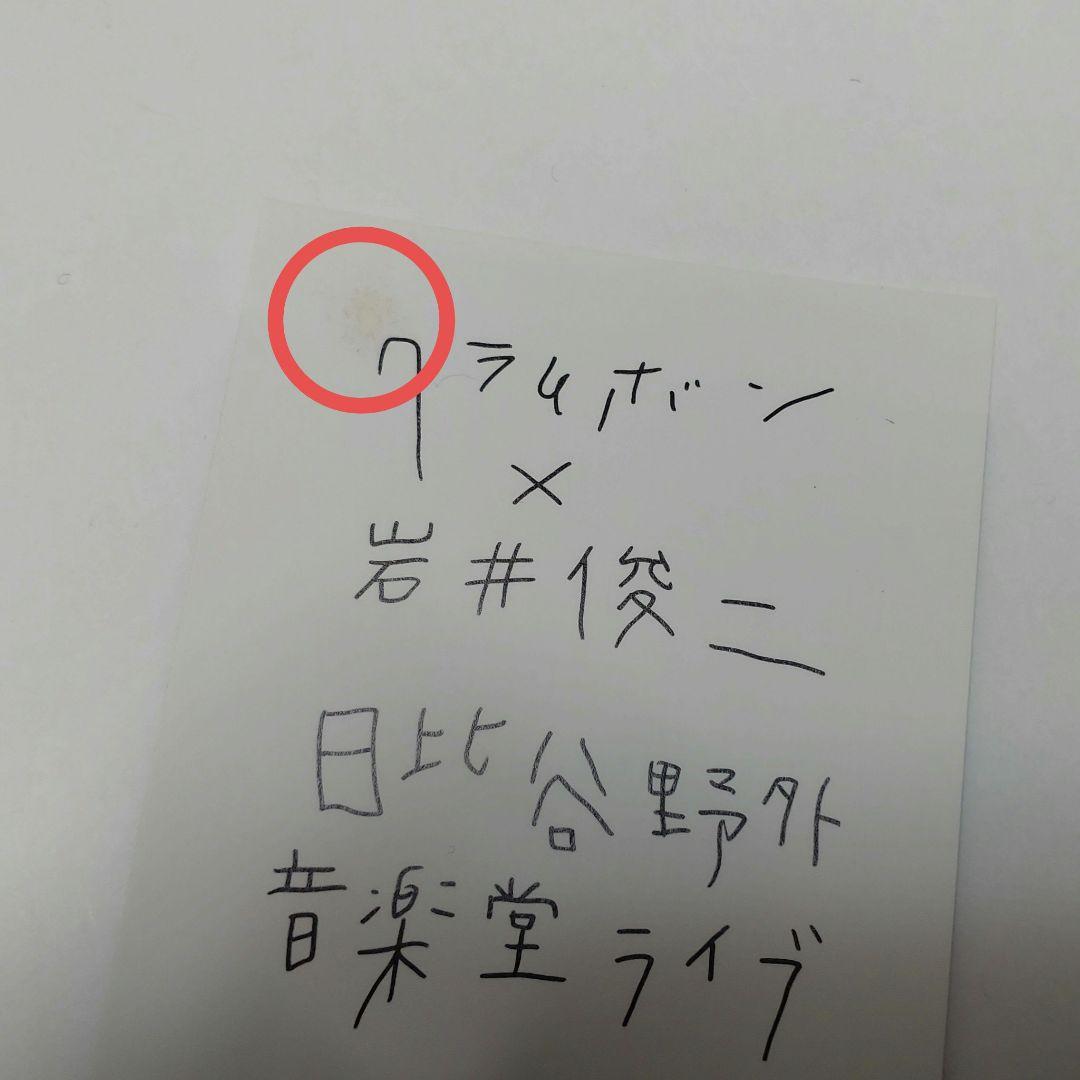 クラムボン
×
岩井俊二
日比谷野外
音楽堂ライブ